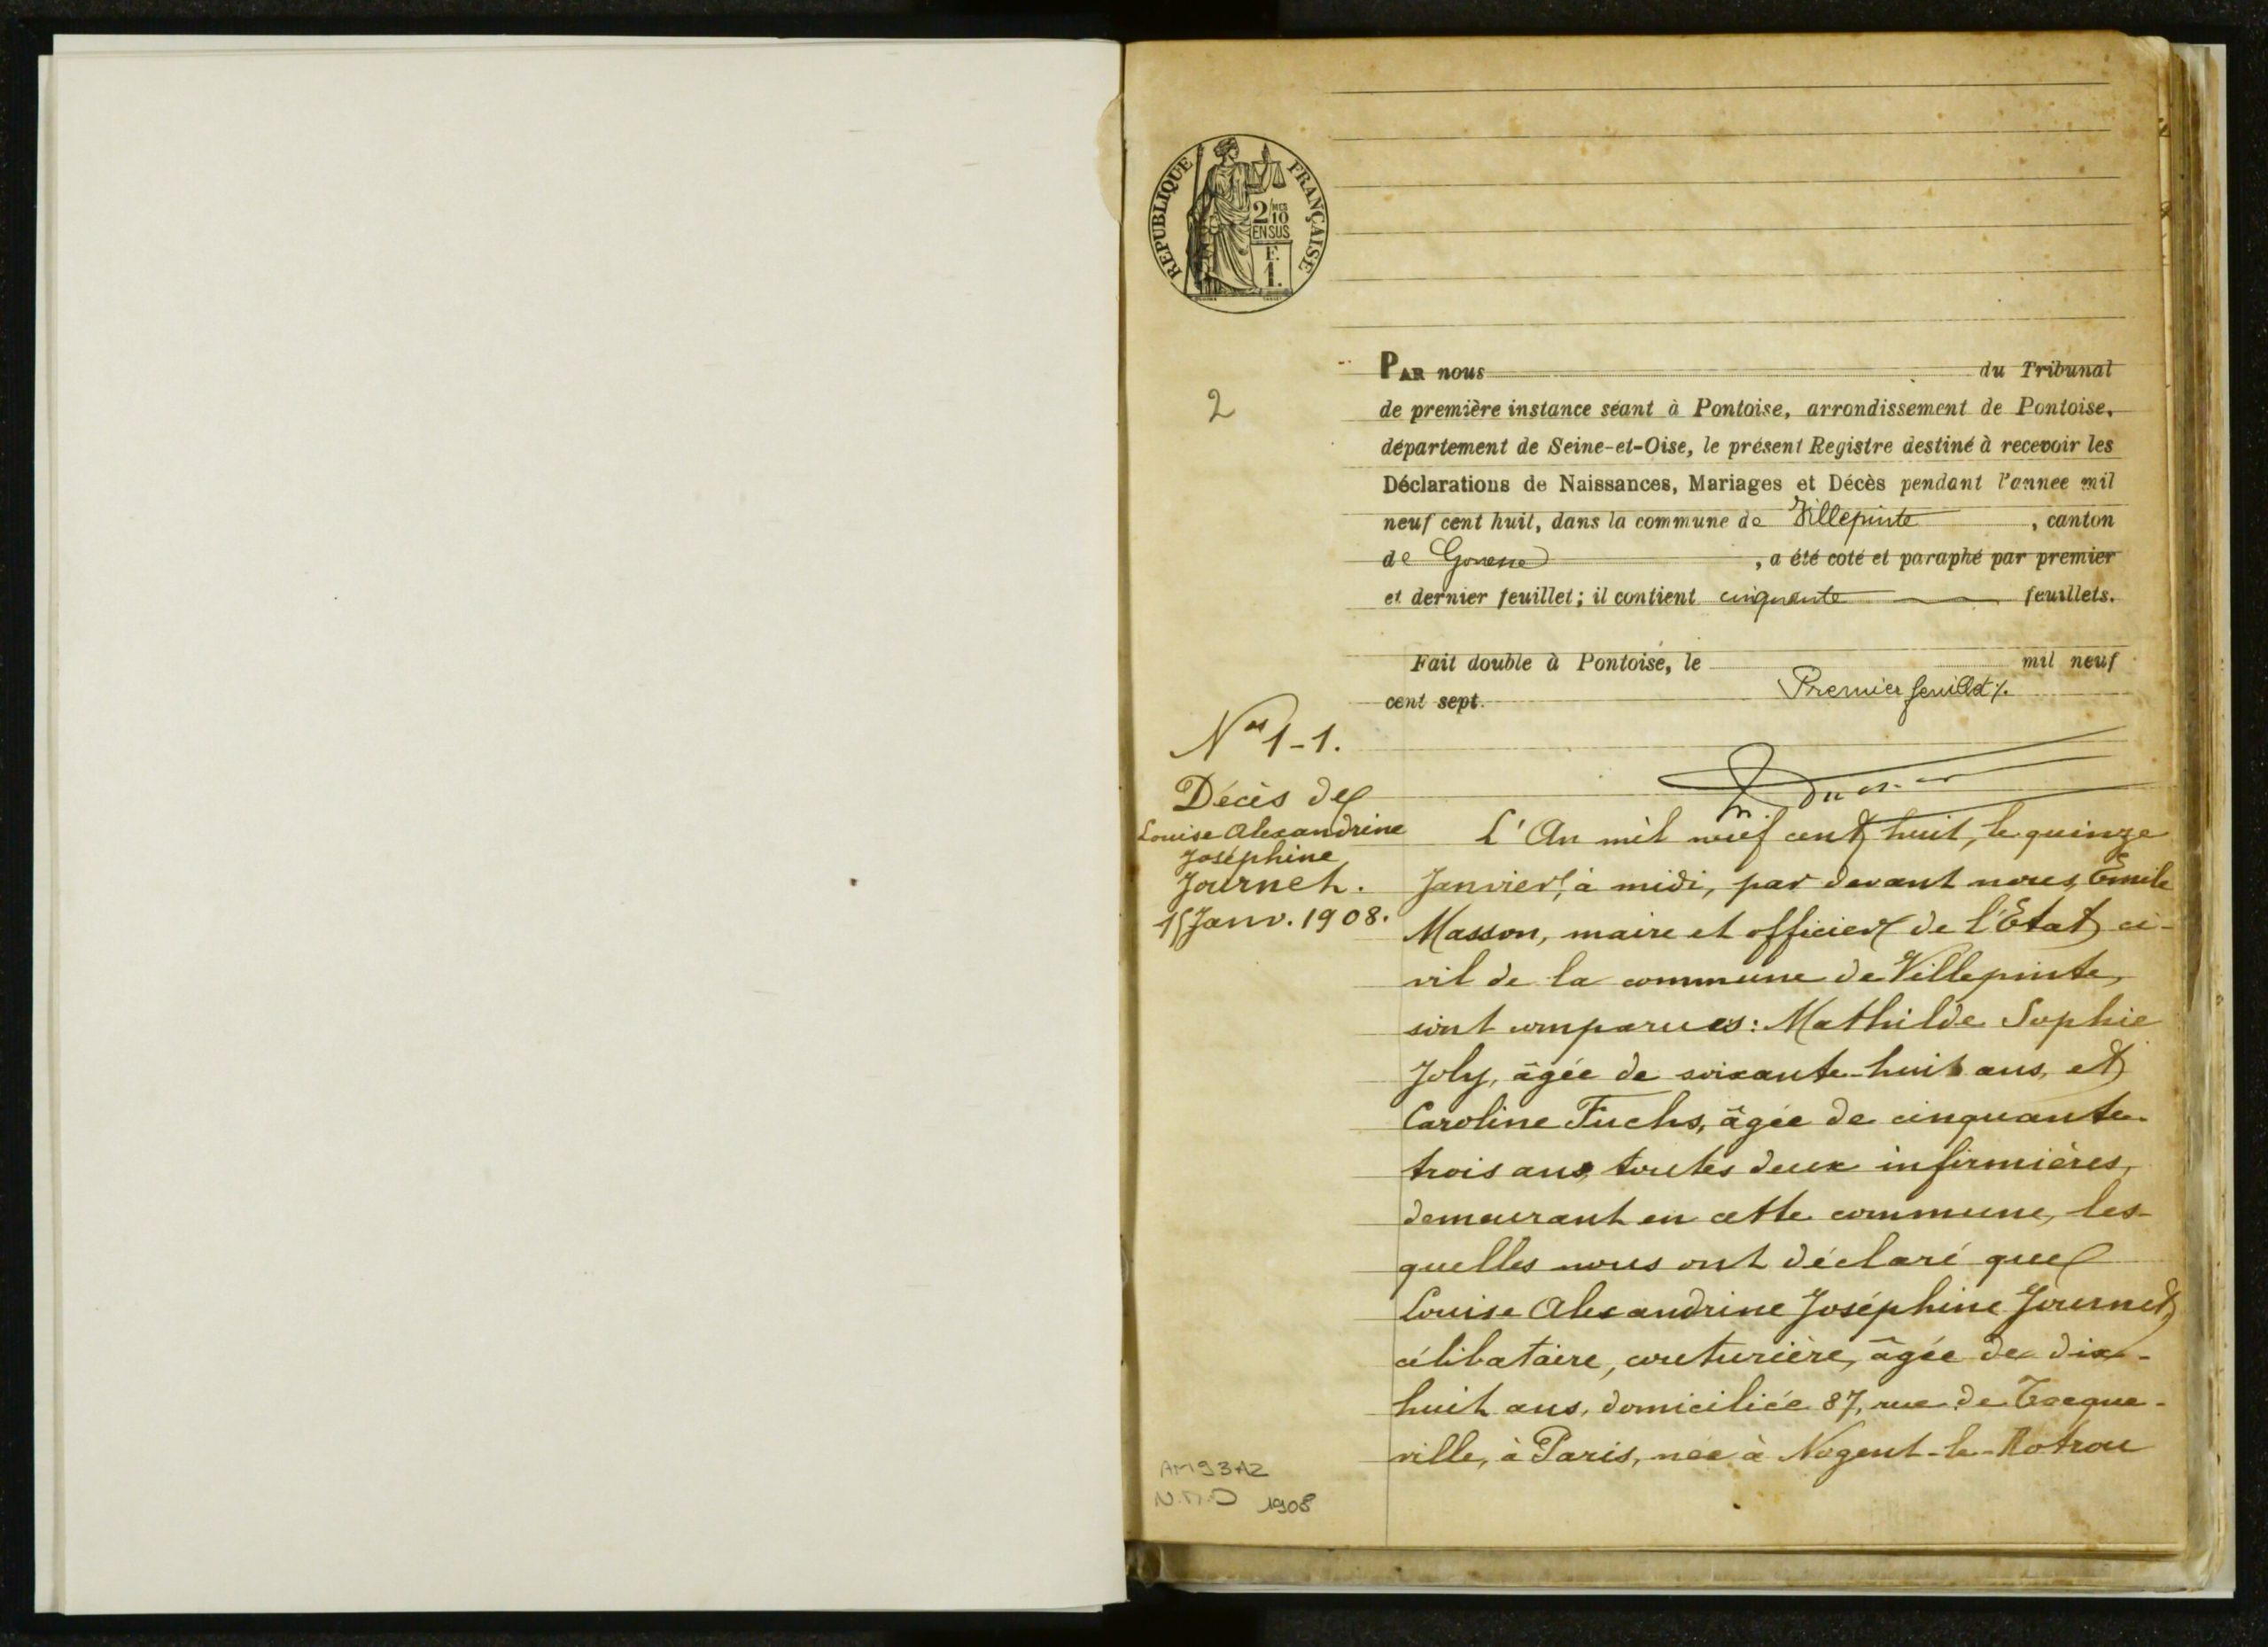 REPUBLIQUE FRANÇAISE
2/10
EN SUS
F.
1.
2
PAR nous du Tribunal
de première instance séant à Pontoise, arrondissement de Pontoise,
département de Seine-et-Oise, le présent Registre destiné à recevoir les
Déclarations de Naissances, Mariages et Décès pendant l'annee mil
neuf cent huit, dans la commune de Villepinte, canton
de Gonesse, a été coté et paraphé par premier
et dernier feuillet; il contient cinquante feuillets.
Fait double à Pontoise, le mil neuf
cent sept.
Premier feuillet %.
Nos 1-1.
Décès de
Louise Alexandrine
Joséphine
Journet.
15 Janv. 1908.
L'An mil neuf cent huit, le quinze
Janvier, à midi, par devant nous, Emile
Masson, maire et officier de l'Etat ci-
vil de la commune de Villepinte,
sont comparues: Mathilde Sophie
Joly, âgée de soixante-huit ans, et
Caroline Fuchs, âgée de cinquante-
trois ans, toutes deux infirmières,
demeurant en cette commune, les-
quelles nous ont déclaré que
Louise Alexandrine Joséphine Journet,
célibataire, couturière, âgée de dix-
huit ans, domiciliée 87, rue de Tocque-
ville, à Paris, née à Nogent-le-Rotrou
AM93A2
N.M.D 1908